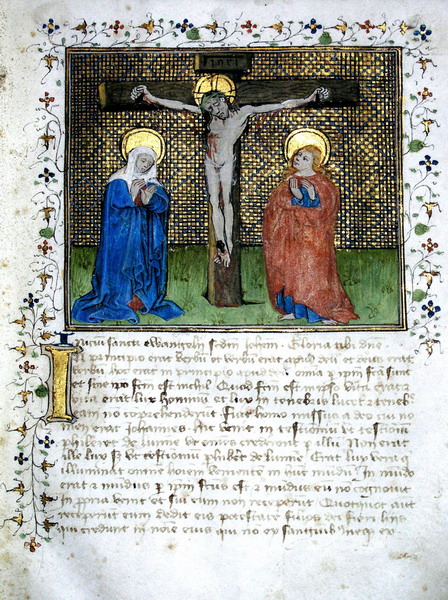 INRI
Iniciu sancti ewangelii scdm Johem Gloria tibi dne
In principio erat verbu et verbu erat apud deu et deus erat
verbu hoc erat in principio apud deu omia p ipm fca sunt
et sine ipo fcm est nichil Quod fcm est in ipso vita erat et
vita erat lux hominu et lux in tenebris lucet et teneb
eam no coprehenderut Fuit homo missus a deo cui no
men erat Johannes. Hic venit in testioniu ut testioniu
phiberet de lumine ut omes crederent p illu Non erat
ille lux sz ut testioniu phibet de lumine. Erat lux vera q
illuminat omnem hoiem veniente in huc mudu In mudo
erat et mudus p ipm fcus est et mudus eu no cognovit
In ppria venit et sui eum non receperut Quotquot aut
receperut eum dedit eis potestate filios dei fieri hiis
qui credunt in noie eius qui no ex sanguinib neqz ex